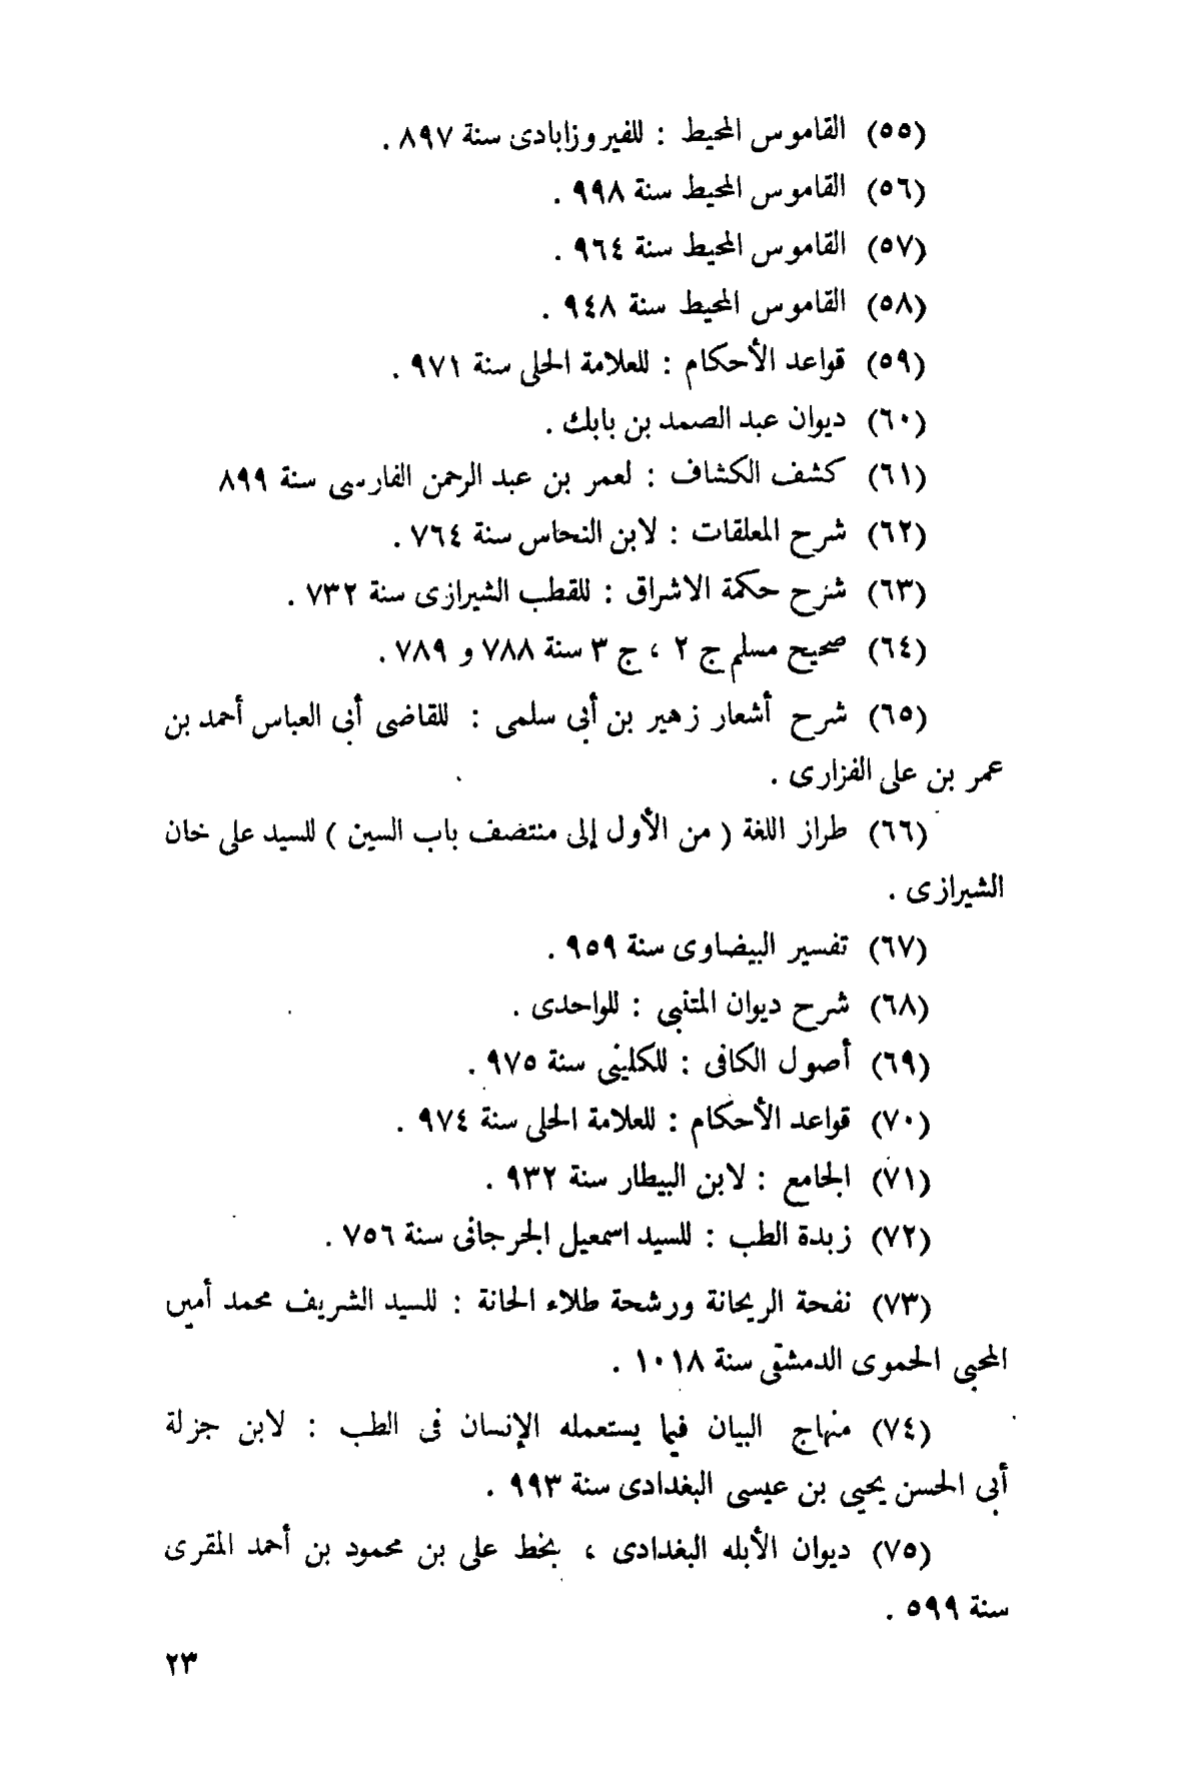 (٥٥) القاموس المحيط : للفيروزابادى سنة ٨٩٧ .
(٥٦) القاموس المحيط سنة ٩٩٨ .
(٥٧) القاموس المحيط سنة ٩٦٤ .
(٥٨) القاموس المحيط سنة ٩٤٨ .
(٥٩) قواعد الأحكام : للعلامة الحلى سنة ٩٧١ .
(٦٠) ديوان عبد الصمد بن بابك .
(٦١) كشف الكشاف : لعمر بن عبد الرحمن الفارسى سنة ٨٩٩
(٦٢) شرح المعلقات : لابن النحاس سنة ٧٦٤ .
(٦٣) شرح حكمة الاشراق : للقطب الشيرازى سنة ٧٣٢ .
(٦٤) صحيح مسلم ج ٢ ، ج ٣ سنة ٧٨٨ و ٧٨٩ .
(٦٥) شرح أشعار زهير بن أبى سلمى : للقاضى أبى العباس أحمد بن
عمر بن على الفزارى .
(٦٦) طراز اللغة ( من الأول إلى منتصف باب السين ) للسيد على خان
الشيرازى .
(٦٧) تفسير البيضاوى سنة ٩٥٩ .
(٦٨) شرح ديوان المتنبى : للواحدى .
(٦٩) أصول الكافى : للكلينى سنة ٩٧٥ .
(٧٠) قواعد الأحكام : للعلامة الحلى سنة ٩٧٤ .
(٧١) الجامع : لابن البيطار سنة ٩٣٢ .
(٧٢) زبدة الطب : للسيد اسمعيل الجرجانى سنة ٧٥٦ .
(٧٣) نفحة الريحانة ورشحة طلاء الحانة : للسيد الشريف محمد أمين
المحبى الحموى الدمشقى سنة ١٠١٨ .
(٧٤) منهاج البيان فيما يستعمله الإنسان فى الطب : لابن جزلة
أبى الحسن يحيى بن عيسى البغدادى سنة ٩٩٣ .
(٧٥) ديوان الأبله البغدادى ، بخط على بن محمود بن أحمد المقرى
سنة ٥٩٩ .
٢٣